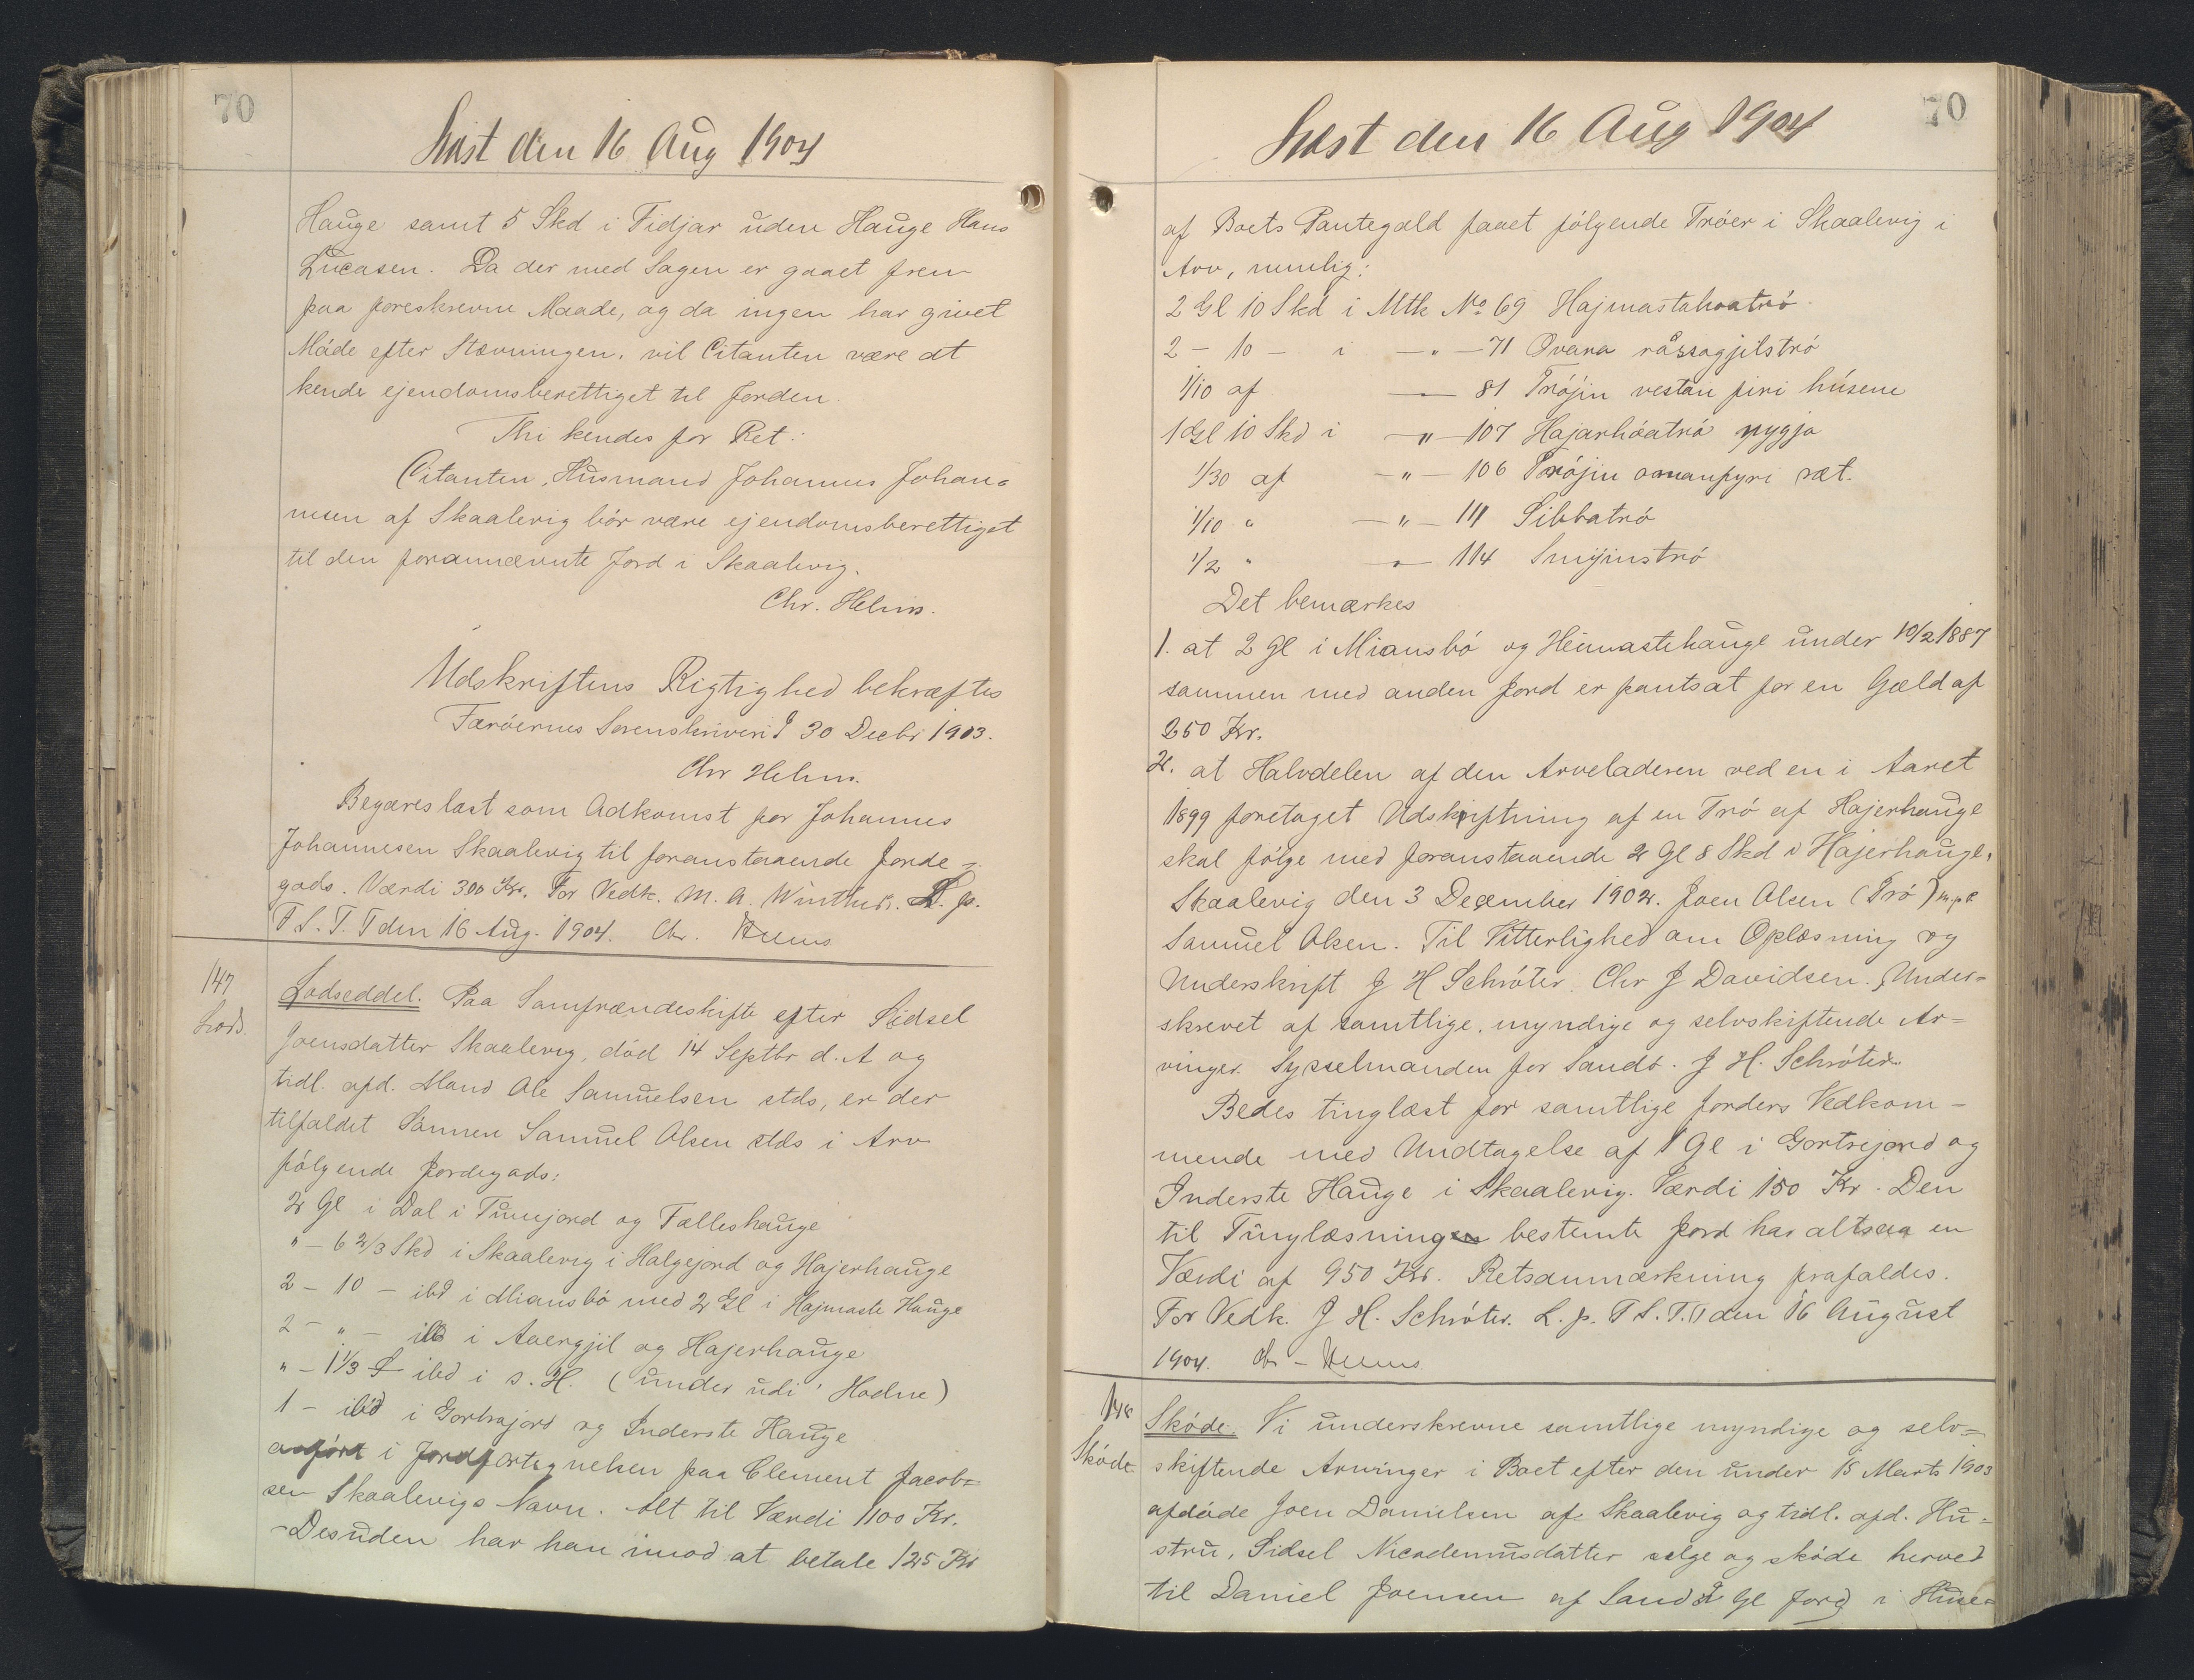 70
Læst den 16 Aug 1904
Hauge samt 5 Skd i Fidjar uden Hauge Hans
Lucasen. Da der med Sagen er gaaet frem
paa foreskrevne Maade, og da ingen har givet
Møde efter Stævningen, vil Citanten være at
kende ejendomsberettiget til Jorden.
Thi kendes for Ret:
Citanten, Husmand Johannes Johan-
nesen af Skaalevig bór være ejendomsberettiget
til den forannævnte Jord i Skaalevig.
Chr. Helms.
Udskriftens Rigtighed bekræftes
Færóernes Sorenskriveri d 30 Decbr 1903.
Chr Helms.
Begæres læst som Adkomst for Johannes
Johannesen Skaalevig til foranstaaende Jorde-
gods. Værdi 300 Kr. For Vedk. M. A. Winther. L. p.
T S. T. T den 16 Aug. 1904. Chr. Helms
147
Lods.
Lodseddel. Paa Samfrændeskifte efter Sidsel
Joensdatter Skaalevig, dód 14 Septbr d. A og
tidl. afd. Mand Ole Samuelsen stds, er der
tilfaldet Sónnen Samuel Olsen stds i Arv
fólgende Jordegods:
2 Gl i Dal i Tunejord og Fælleshauge
" - 6 2/3 Skd i Skaalevig i Halgejord og Hajerhauge
2 - 10 - ibd i Miansbó med 2 Gl i Hajmaste Hauge
2 - " - ibd i Aaergjil og Hajerhauge
" - 1 1/3 S ibd i s. H. (under udi Hodne)
1 - ibd i Gortrajord og Inderste Hauge
anfórt i Jordfortegnelsen paa Clement Jacob-
sen Skaalevigs Navn. Alt til Værdi 1100 Kr.
Desuden har han imod at betale 125 Kr
70
Læst den 16 Aug 1904
af Boets Pantegæld faaet fólgende Tróer i Skaalevig i
Arv, nemlig:
2 Gl 10 Skd i Mtk No 69 Hajmastahoatró
2 - 10 - i - " - 71 Ovara råssagjilstró
1/10 af - 81 Trójin vestan firi húsene
1 Gl 10 Skd i - " - 107 Hajarhóatró nygja
1/30 af - " - 106 Trójin omanfyri ræt.
1/10 " - " - 111 Sibbatró
1/2 " - " - 114 Smijinstró
Det bemærkes
1. at 2 Gl i Miansbó og Heimastehauge under 10/2 1887
sammen med anden Jord er pantsat for en Gæld af
250 Kr.
2. at Halvdelen af den Arveladeren ved en i Aaret
1899 foretaget Udskiftning af en Tró af Hajerhauge
skal fólge med foranstaaende 2 Gl 8 Skd i Hajerhauge.
Skaalevig den 3 December 1902. Joen Olsen (Tró) m.p.
Samuel Olsen. Til Vitterlighed om Oplæsning og
Underskrift J H Schróter. Chr J Davidsen. Under-
skrevet af samtlige, myndige og selvskiftende Ar-
vinger. Sysselmanden for Sandó. J H. Schróter.
Bedes tinglæst for samtlige Jorders Vedkom-
mende med Undtagelse af 1 Gl i Gortrejord og
Inderste Hauge i Skaalevig. Værdi 150 Kr. Den
til Tinglæsning bestemte Jord har altsaa en
Værdi af 950 Kr. Retsanmærkning frafaldes.
For Vedk. J H. Schróter. L. p. T S. T. T den 16 August
1904. Chr - Helms.
148
Skóde
Skóde. Vi underskrevne samtlige myndige og selv-
skiftende Arvinger i Boet efter den under 15 Marts 1903
afdóde Joen Danielsen af Skaalevig og tidl. afd. Hu-
stru, Sidsel Nicodemusdatter sælge og skóde herved
til Daniel Joensen af Sand 2 Gl Jord i Huse-